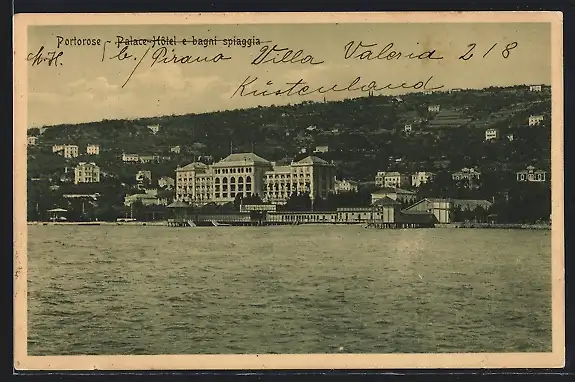 Portorose - Palace-Hôtel e bagni spiaggia
b./Pirano Villa Valeria 218
Küstenland